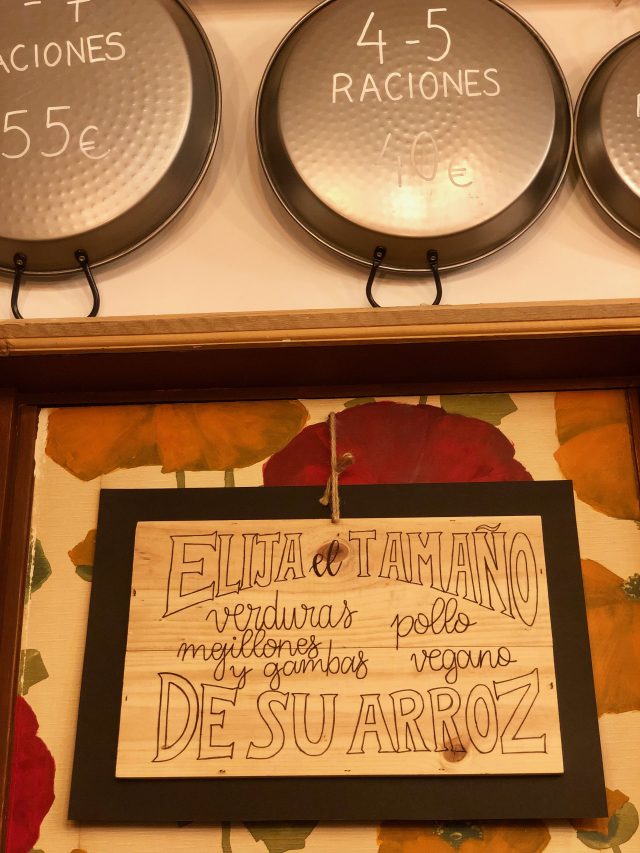 RACIONES
55€
4-5
RACIONES
40€
ELIJA el TAMAÑO
verduras pollo
mejillones
y gambas vegano
DE SU ARROZ